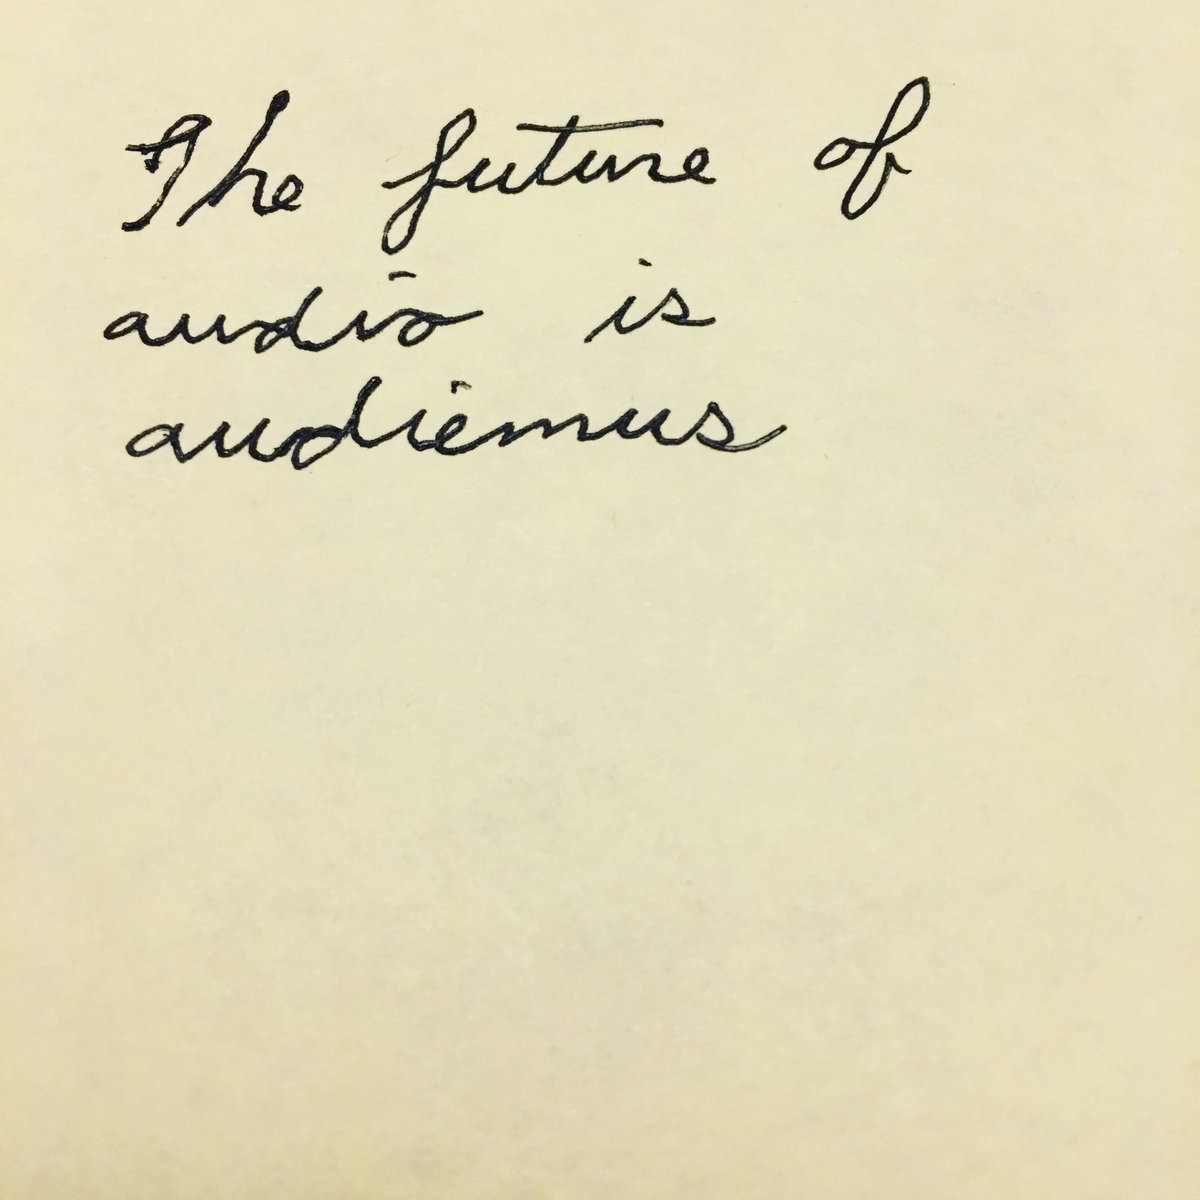 The future of
audio is
audiemus